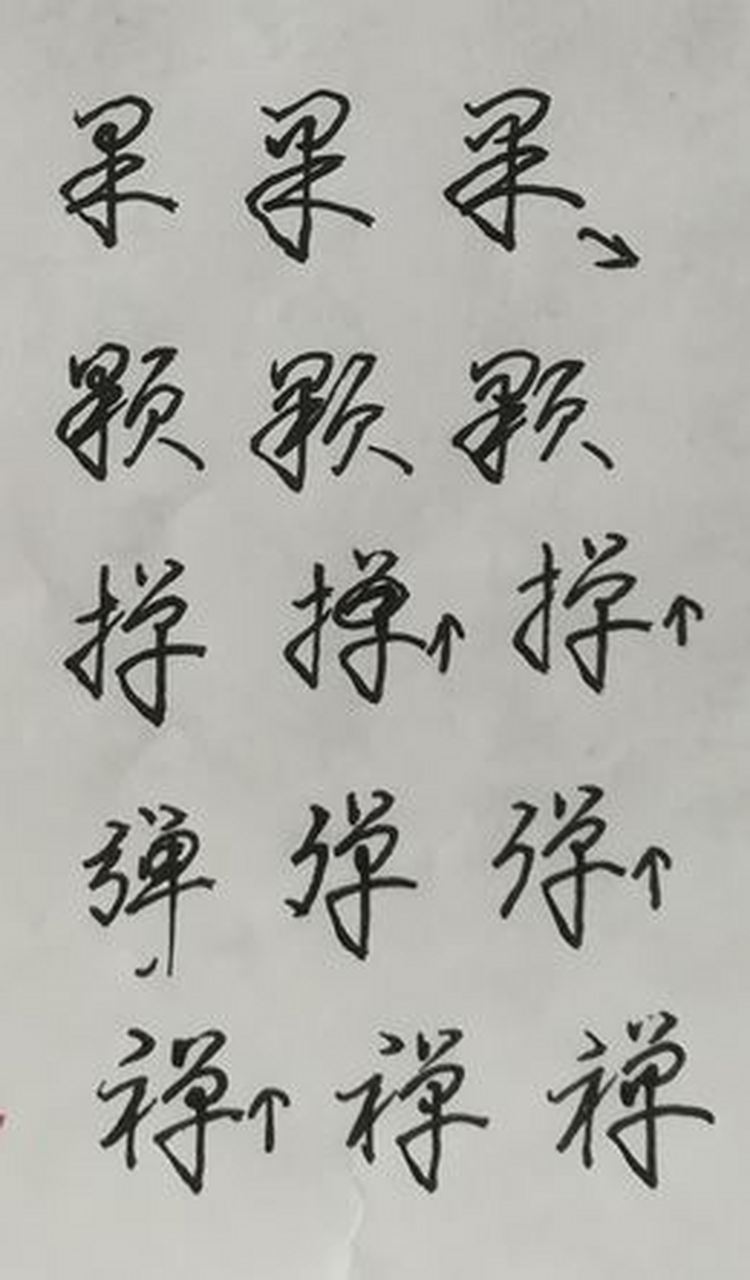 果 果 果
颗 颗 颗
掸 掸 掸
弹 弹 弹
禅 禅 禅